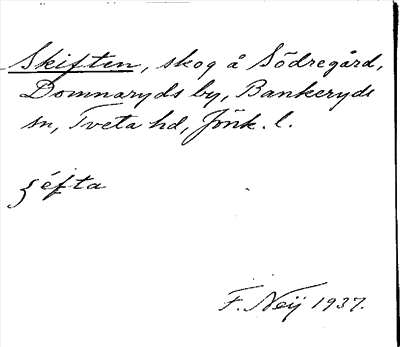 Skiften, skog å Södregård,
Domnaryds by, Bankeryds
sn, Tveta hd, Jönk. l.
ʃéfta
F. Neij 1937.